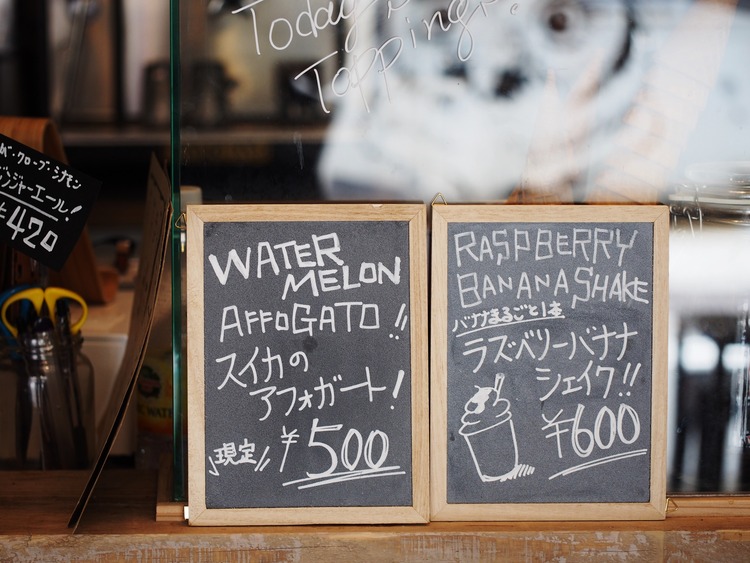 Today's
Topping!
クローブ・シナモン
ジンジャーエール!
¥420
WATER
MELON
AFFOGATO!!
スイカの
アフォガート!
現定
¥500
RASPBERRY
BANANA SHAKE
バナナまるごと1本
ラズベリーバナナ
シェイク!!
¥600